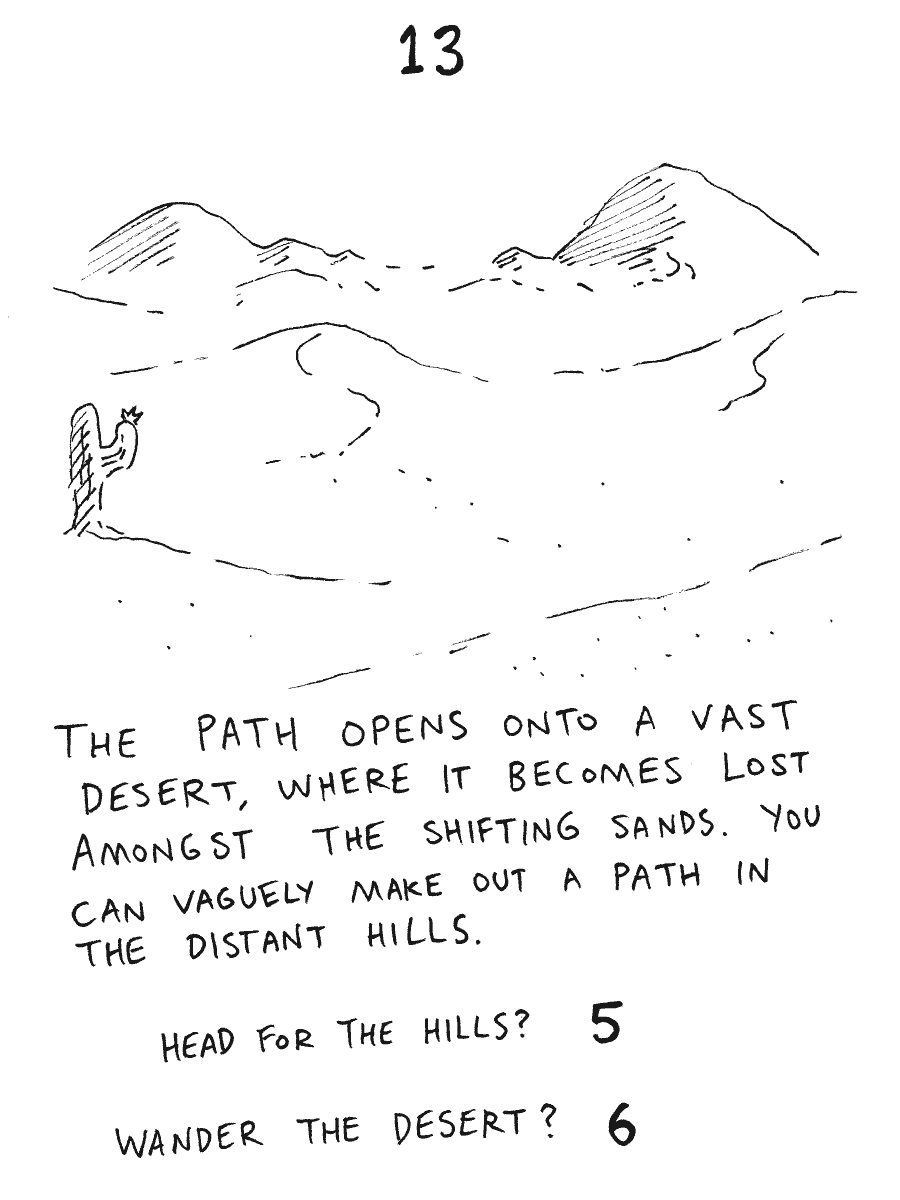 13
THE PATH OPENS ONTO A VAST
DESERT, WHERE IT BECOMES LOST
AMONGST THE SHIFTING SANDS. YOU
CAN VAGUELY MAKE OUT A PATH IN
THE DISTANT HILLS.
HEAD FOR THE HILLS? 5
WANDER THE DESERT? 6